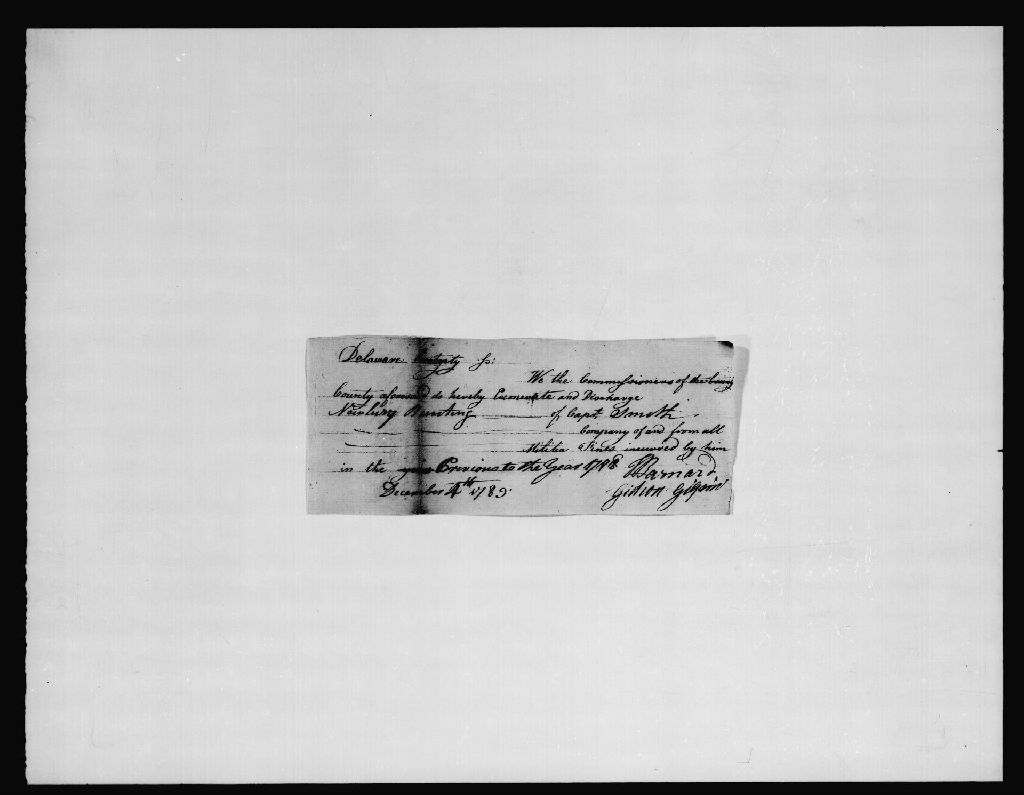 Delaware County Ss:
We the Commissioners of the County
County aforesaid do hereby Exonerate and Discharge
Newbury Bunting of Capt. Smith
Company of and from all
Militia Fines incurred by him
in the Previous to the Year 1788
Barnard
December 4th 1789.
Gideon